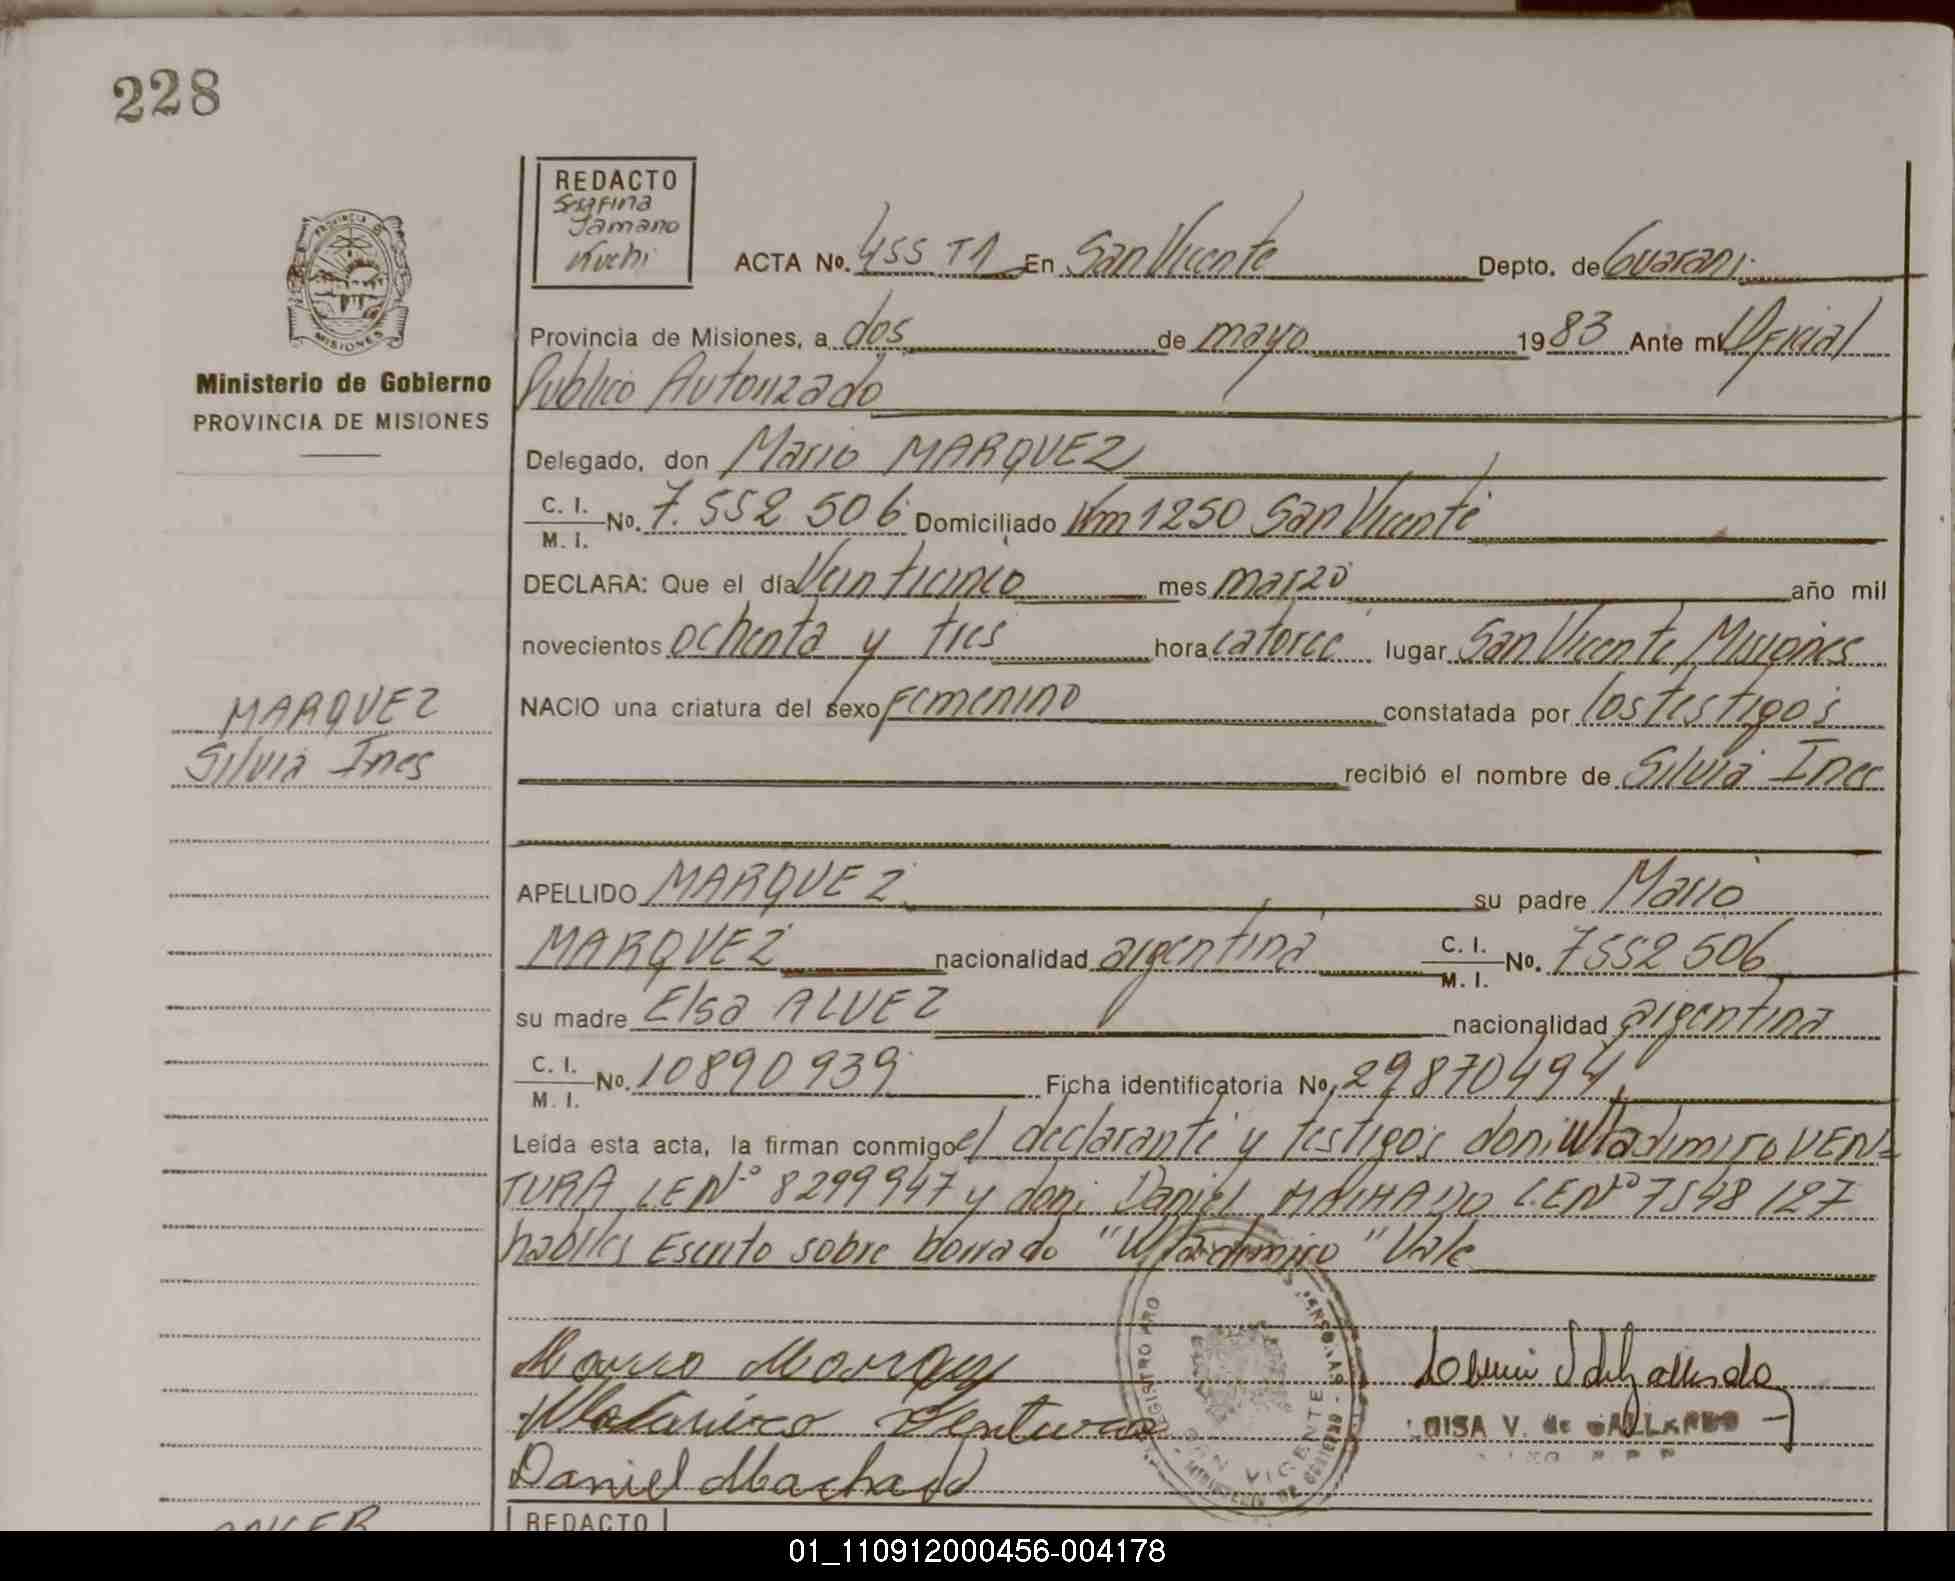 228
REDACTO
Serafina
Tamano
Kuchi
ACTA No. 455 T1 En San Vicente Depto. de Guarani
PROVINCIA DE
MISIONES
Ministerio de Gobierno
PROVINCIA DE MISIONES
Provincia de Misiones, a dos de mayo 1983 Ante mi Oficial
Publico Autorizado
Delegado, don Mario MARQUEZ
C. I.
M. I. No. 7.552.506 Domiciliado Km 1250 San Vicente
DECLARA: Que el día Veinticinco mes marzo año mil
novecientos ochenta y tres hora catorce lugar San Vicente Misiones
NACIO una criatura del sexo Femenino constatada por los testigos
MARQUEZ
Silvia Ines
recibió el nombre de Silvia Ines
APELLIDO MARQUEZ su padre Mario
MARQUEZ nacionalidad argentina C. I.
M. I. No. 7552506
su madre Elsa ALVEZ nacionalidad argentina
C. I.
M. I. No. 10890939 Ficha identificatoria No. 29870494
Leída esta acta, la firman conmigo el declarante y testigos don: Wladimiro VEN=
TURA L.E Nº 8299947 y don: Daniel MACHADO L.E Nº 7548127
habiles Escrito sobre borrado "Wladimiro" Vale
Daniel Machado
SAN VICENTE
V. de GALLARDO
REDACTO
01_110912000456-004178